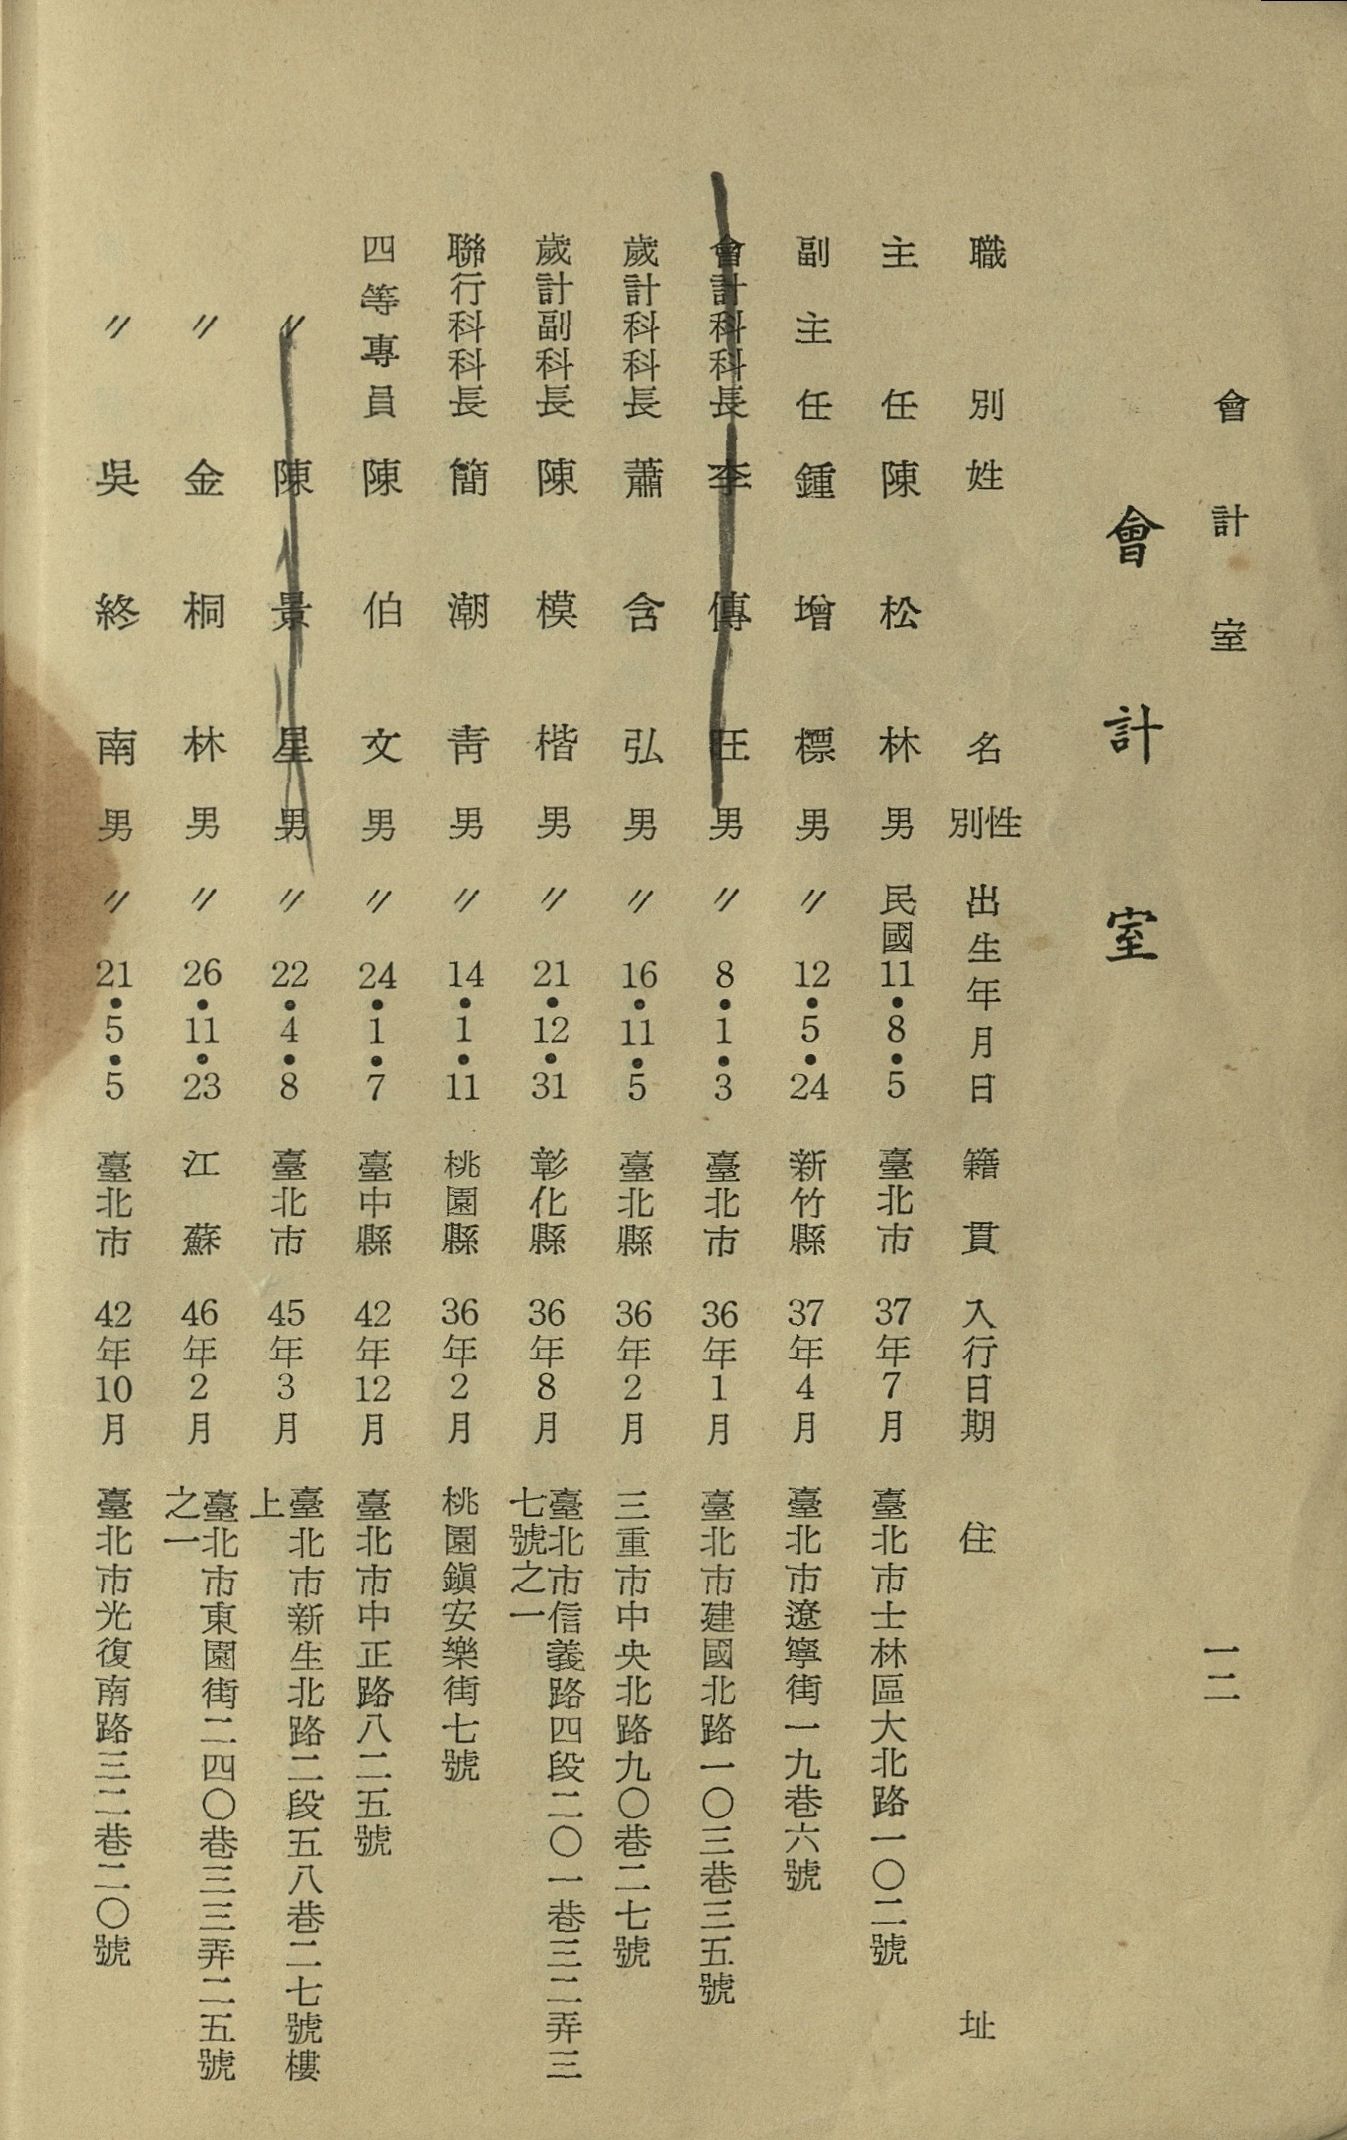 會計室
一二
會計室
職別 姓名 性別 出生年月日 籍貫 入行日期 住址
主任 陳松林 男 民國11•8•5 臺北市 37年7月 臺北市士林區大北路一〇二號
副主任 鍾增標 男 〃12•5•24 新竹縣 37年4月 臺北市遼寧街一九巷六號
會計科科長 李傳旺 男 〃8•1•3 臺北市 36年1月 臺北市建國北路一〇三巷三五號
歲計科科長 蕭含弘 男 〃16•11•5 臺北縣 36年2月 三重市中央北路九〇巷二七號
歲計副科長 陳模楷 男 〃21•12•31 彰化縣 36年8月 臺北市信義路四段二〇一巷三二弄三
七號之一
聯行科科長 簡潮青 男 〃14•1•11 桃園縣 36年2月 桃園鎭安樂街七號
四等專員 陳伯文 男 〃24•1•7 臺中縣 42年12月 臺北市中正路八二五號
〃 陳景星 男 〃22•4•8 臺北市 45年3月 臺北市新生北路二段五八巷二七號樓
上
〃 金桐林 男 〃26•11•23 江蘇 46年2月 臺北市東園街二四〇巷三三弄二五號
之一
〃 吳終南 男 〃21•5•5 臺北市 42年10月 臺北市光復南路三二巷二〇號